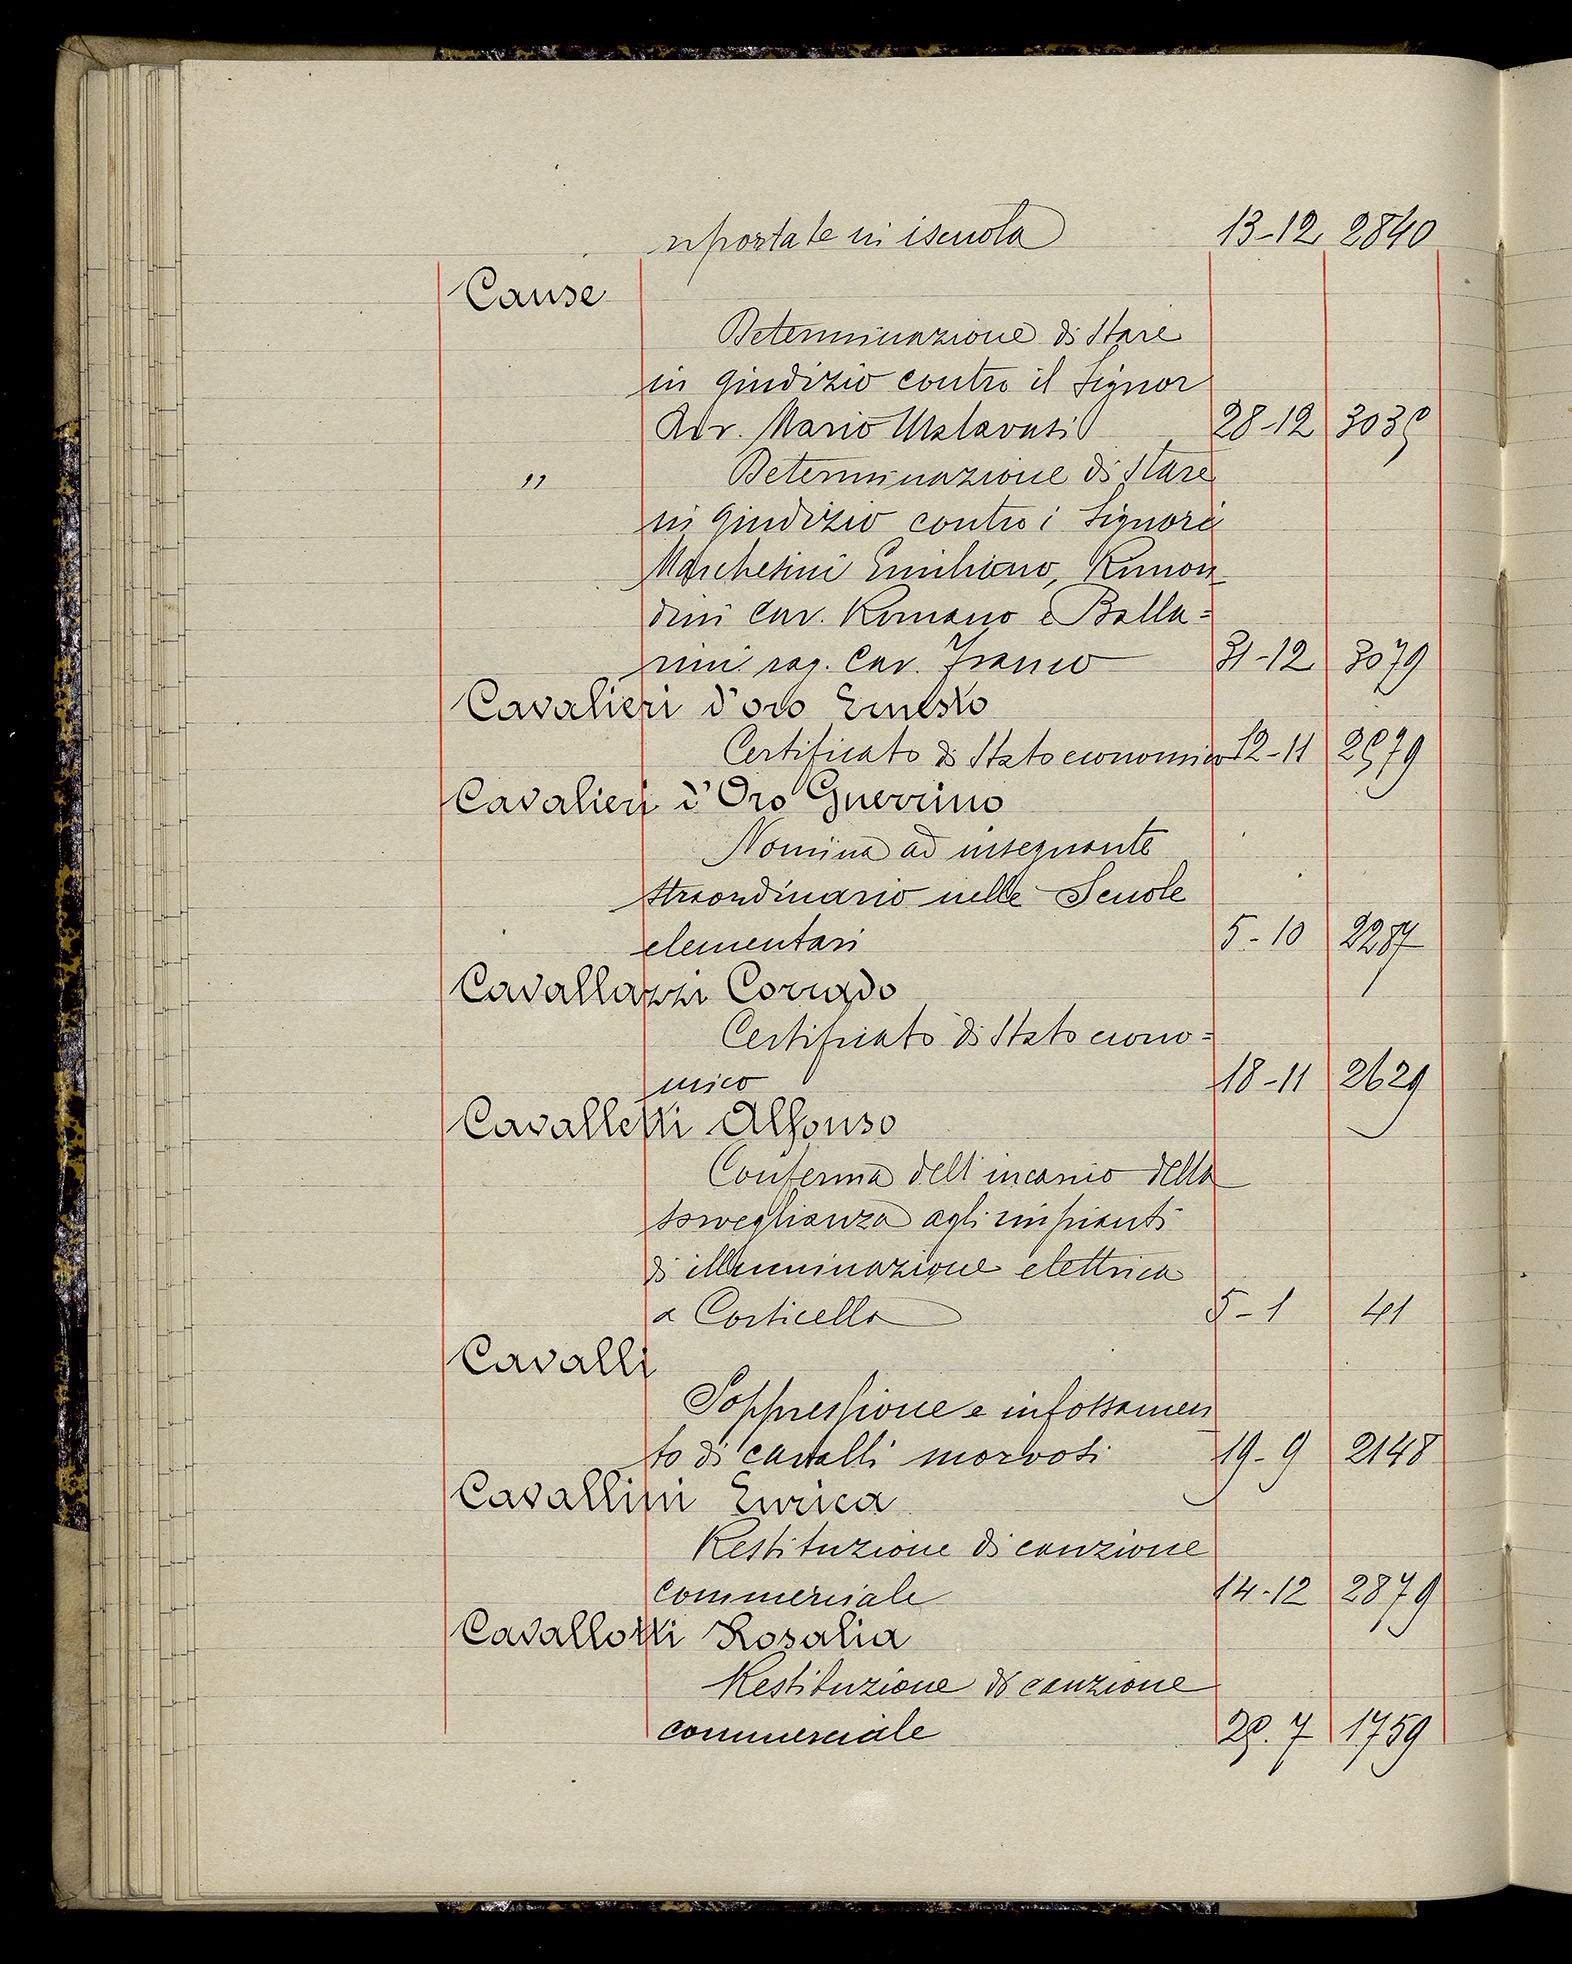 riportate in iscuola 13-12 2840
Cause
Determinazione di stare
in giudizio contro il Signor
Avv. Mario 28-12 3038
" Determinazione di stare
in giudizio contro i Signori
Marchesini Emiliano, Rimon
dini Cav. Romano e Balla=
rini rag. Cav. Franco 31-12 3079
Cavalieri d'oro Ernesto
Certificato di Stato economico 12-11 2579
Cavalieri d'Oro Guerrino
Nomina ad insegnante
straordinario nelle Scuole
elementari 5-10 2287
Cavallazzi Corrado
Certificato di Stato econo=
mico 18-11 2629
Cavalletti Alfonso
Conferma dell'incarico della
sorveglianza agli impianti
di illuminazione elettrica
a Corticella 5-1 41
Cavalli
Soppressione e infossamen
to di cavalli morvosi 19-9 2148
Cavallini Enrica
Restituzione di cauzione
commerciale 14-12 2879
Cavallotti Rosalia
Restituzione di cauzione
commerciale 28.7 1759